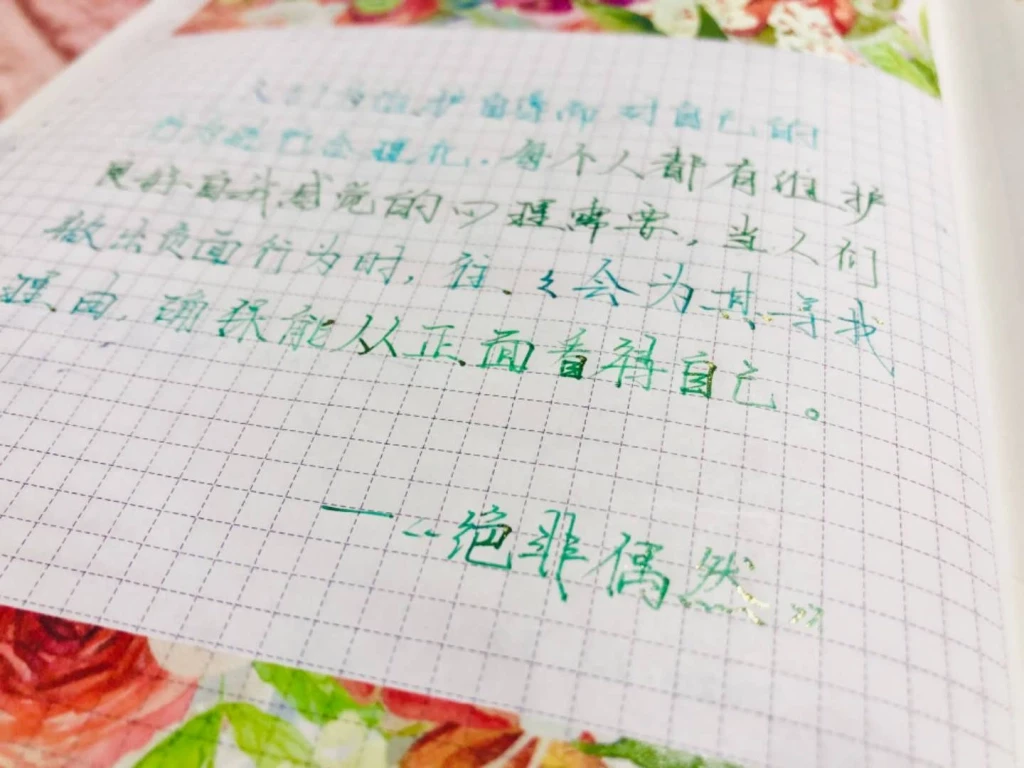 人们为维护自尊而对自己的
行为进行合理化。每个人都有维护
良好自我感觉的心理需要，当人们
做出负面行为时，往往会为其寻找
理由，确保能从正面看得自己。
——“绝非偶然”